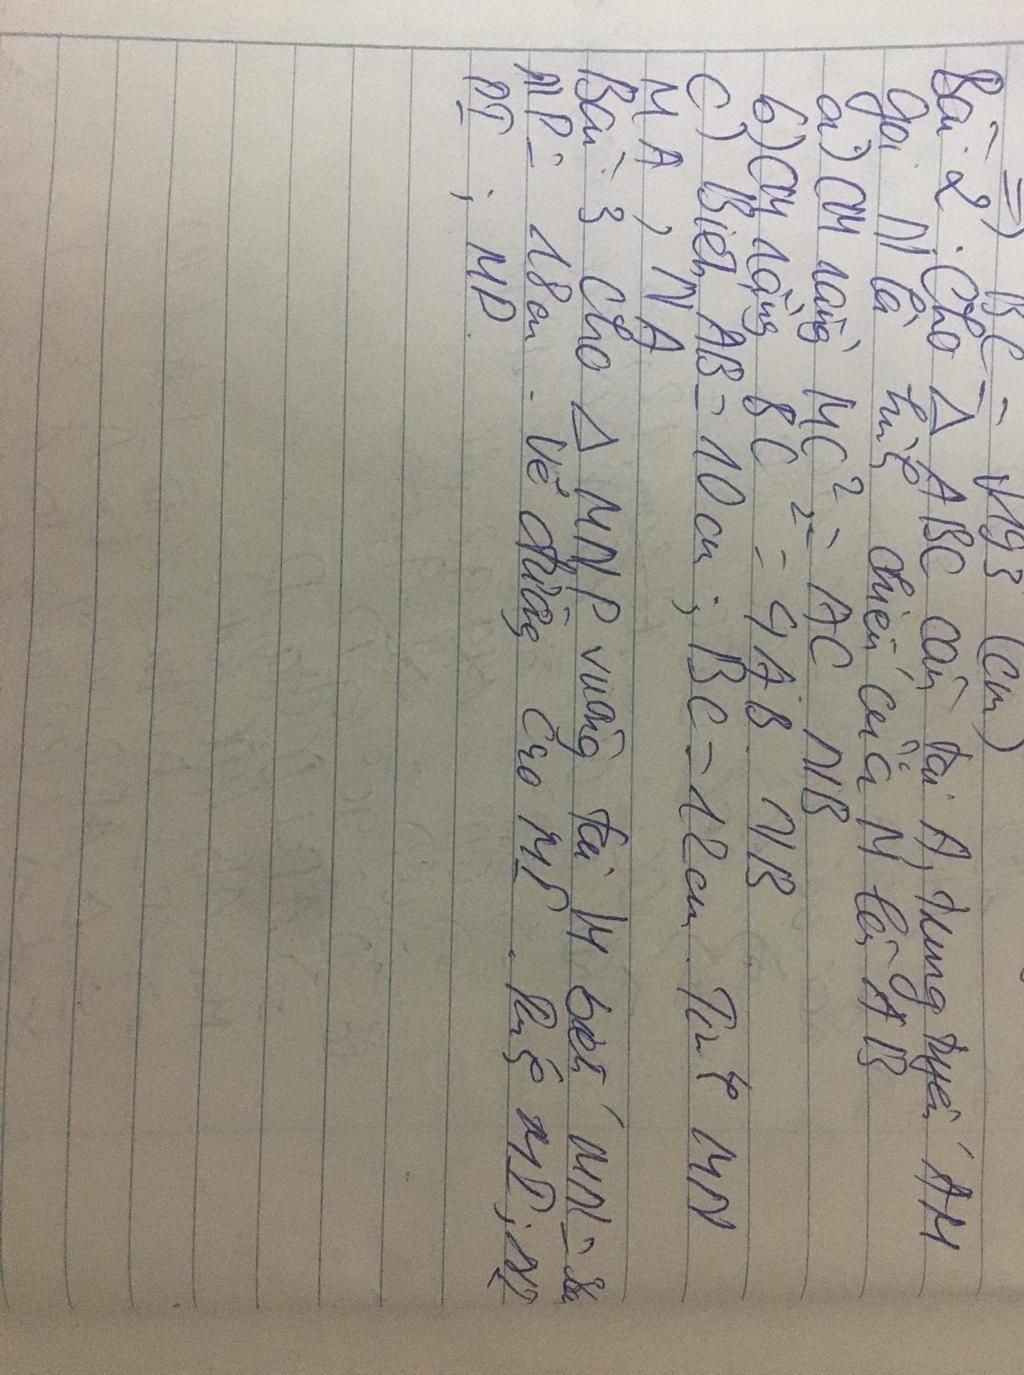 =) BC = √193 (cm)
Bài 2. Cho Δ ABC cân tại A, trung tuyến AM
gọi N là hình chiếu của M lên AB
a) CM rằng MC² = AC NB
b) CM rằng BC² = 4AB. NB
c) Biết AB = 10cm; BC = 12cm. Tính MN
MA, NA
Bài 3 Cho Δ MNP vuông tại M biết MN =
NP = 18cm. Vẽ đường cao MI. Tính MI; NI
PI; MP.